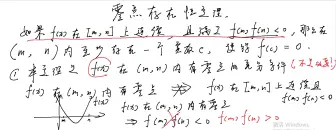 零点存在性定理.
如果 f(x) 在 [m, n] 上连续 且满足 f(m)f(n)<0, 那么在
(m, n) 内至少存在一个实数c, 使得 f(c) = 0.
① 本定理是 f(x) 在 (m, n) 内有零点的充分条件 (不是必要)
f(x) 在 (m, n) 内有零点 f(x) 在 [m, n] 上连续且
f(m)f(n)<0
f(x) 在 (m, n) 内有零点
⇒ f(m)f(n)<0 f(m)f(n)>0
m n
激活 Windows